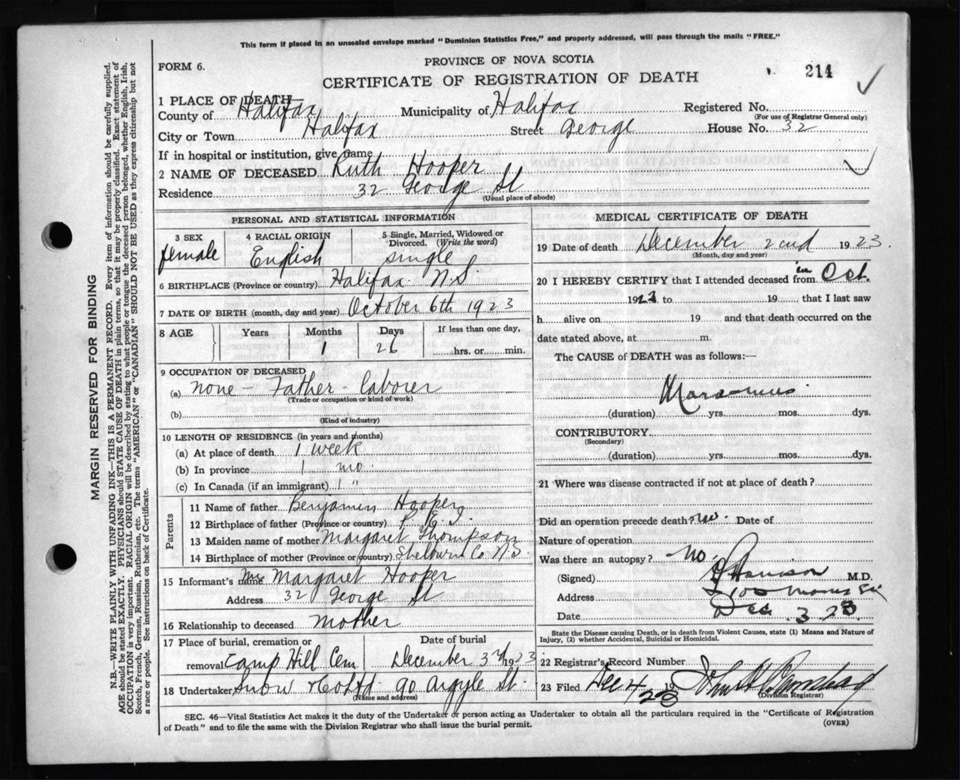 This form if placed in an unsealed envelope marked "Dominion Statistics Free," and properly addressed, will pass through the mails "FREE."
FORM 6.
PROVINCE OF NOVA SCOTIA
CERTIFICATE OF REGISTRATION OF DEATH
214
1 PLACE OF DEATH
County of Halifax Municipality of Halifax Registered No.
(For use of Registrar General only)
City or Town Halifax Street George House No. 32
If in hospital or institution, give name
2 NAME OF DECEASED Ruth Hooper
Residence 32 George St
(Usual place of abode)
PERSONAL AND STATISTICAL INFORMATION
3 SEX female
4 RACIAL ORIGIN English
5 Single, Married, Widowed or Divorced. (Write the word) single
6 BIRTHPLACE (Province or country) Halifax N.S.
7 DATE OF BIRTH (month, day and year) October 6th 1923
8 AGE Years Months Days If less than one day,
1 26 hrs. or min.
9 OCCUPATION OF DECEASED
(a) none - Father - laborer
(Trade or occupation or kind of work)
(b)
(Kind of industry)
10 LENGTH OF RESIDENCE (in years and months)
(a) At place of death 1 week
(b) In province 1 mo.
(c) In Canada (if an immigrant) 1 "
Parents
11 Name of father Benjamin Hooper
12 Birthplace of father (Province or country) P. E. I.
13 Maiden name of mother Margaret Thompson
14 Birthplace of mother (Province or Country) Co N.S
15 Informant's name Mrs Margaret Hooper
Address 32 George St
16 Relationship to deceased mother
17 Place of burial, cremation or removal Camp Hill Cem Date of burial December 3rd 1923
18 Undertaker Snow & Co Ltd 90 Argyle St.
(Name and address)
MEDICAL CERTIFICATE OF DEATH
19 Date of death December 2nd 1923.
(Month, day and year)
20 I HEREBY CERTIFY that I attended deceased from in Oct.
1923 to 19 that I last saw
h alive on 19 and that death occurred on
date stated above, at m.
The CAUSE of DEATH was as follows:—
Marasmus
(duration) yrs. mos. dys.
CONTRIBUTORY
(Secondary)
(duration) yrs. mos. dys.
21 Where was disease contracted if not at place of death?
Did an operation precede death? no. Date of
Nature of operation
Was there an autopsy? No
(Signed) M.D.
Address
Date Dec. 3 23
State the Disease causing Death, or in death from Violent Causes, state (1) Means and Nature of
Injury, (2) whether Accidental, Suicidal or Homicidal.
22 Registrar's Record Number
23 Filed Dec 4 1923 John
(Division Registrar)
SEC. 46—Vital Statistics Act makes it the duty of the Undertaker or person acting as Undertaker to obtain all the particulars required in the "Certificate of Registration
of Death" and to file the same with the Division Registrar who shall issue the burial permit.
(OVER)
MARGIN RESERVED FOR BINDING
N.B.—WRITE PLAINLY WITH UNFADING INK—THIS IS A PERMANENT RECORD. Every item of information should be carefully supplied.
AGE should be stated EXACTLY. PHYSICIANS should STATE CAUSE OF DEATH in plain terms, so that it may be properly classified. Exact statement of
OCCUPATION is very important. RACIAL ORIGIN will be described by stating to what people or tongue the deceased person belonged, whether English, Irish,
Scotch, French, German, Russian, Ruthenian, etc. The terms "AMERICAN" or "CANADIAN" SHOULD NOT BE USED as they express citizenship but not
a race or people. See instructions on back of Certificate.